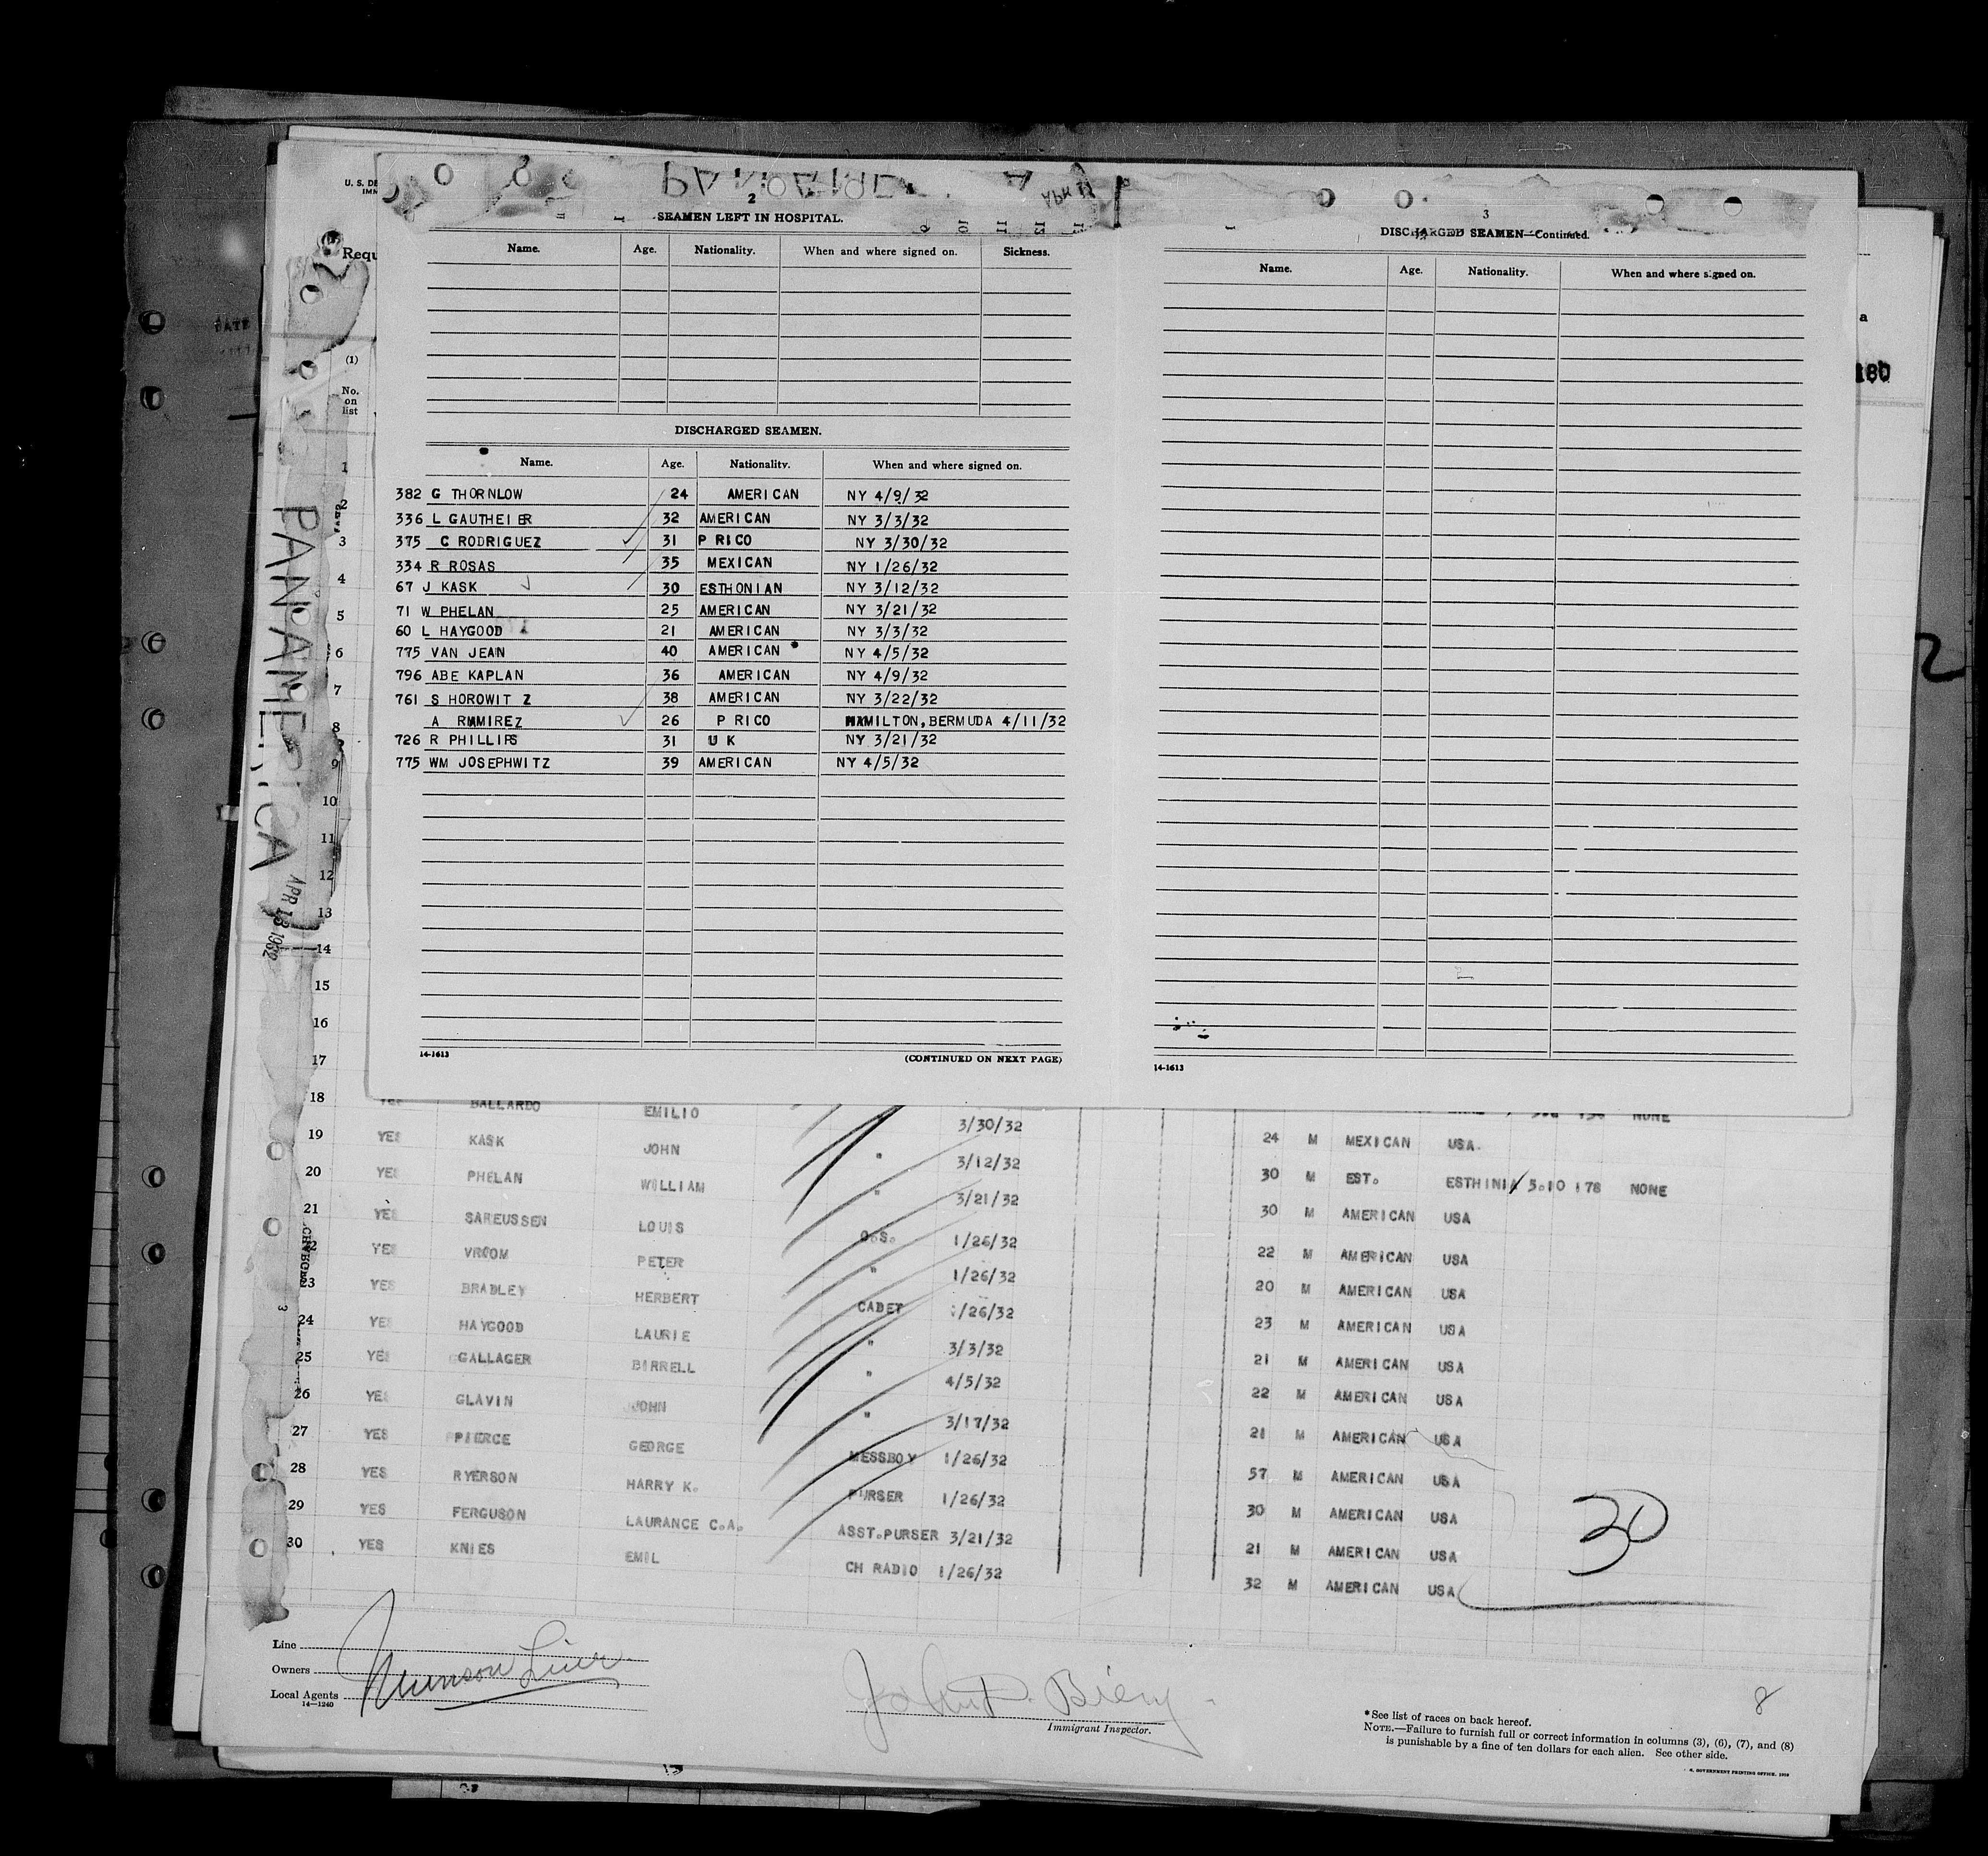 U. S. DE
IMM
Requ
(1)
No.
on
list
2
SEAMEN LEFT IN HOSPITAL.
Name. Age. Nationality. When and where signed on. Sickness.
DISCHARGED SEAMEN.
Name. Age. Nationality. When and where signed on.
382 G THORNLOW 24 AMERICAN NY 4/9/32
336 L GAUTHEIER 32 AMERICAN NY 3/3/32
375 C RODRIGUEZ 31 P RICO NY 3/30/32
334 R ROSAS 35 MEXICAN NY 1/26/32
67 J KASK 30 ESTHONIAN NY 3/12/32
71 W PHELAN 25 AMERICAN NY 3/21/32
60 L HAYGOOD 21 AMERICAN NY 3/3/32
775 VAN JEAN 40 AMERICAN NY 4/5/32
796 ABE KAPLAN 36 AMERICAN NY 4/9/32
761 S HOROWIT Z 38 AMERICAN NY 3/22/32
A RAMIREZ 26 P RICO HAMILTON, BERMUDA 4/11/32
726 R PHILLIPS 31 U K NY 3/21/32
775 WM JOSEPHWITZ 39 AMERICAN NY 4/5/32
14-1613 (CONTINUED ON NEXT PAGE)
3
DISCHARGED SEAMEN—Continued.
Name. Age. Nationality. When and where signed on.
14-1613
a
180
2
PAN AMERICA
APR 13 1932
1
2
3
4
5
6
7
8
9
10
11
12
13
14
15
16
17
18 YES BALLARDO EMILIO 3/30/32 NONE
19 YES KASK JOHN " 3/12/32 24 M MEXICAN USA.
20 YES PHELAN WILLIAM " 3/21/32 30 M EST. ESTHINIA 5.10 178 NONE
21 YES SAREUSSEN LOUIS O.S. 1/26/32 30 M AMERICAN USA
22 YES VROOM PETER " 1/26/32 22 M AMERICAN USA
23 YES BRADLEY HERBERT CADET 1/26/32 20 M AMERICAN USA
24 YES HAYGOOD LAURIE " 3/3/32 23 M AMERICAN USA
25 YES GALLAGER BIRRELL " 4/5/32 21 M AMERICAN USA
26 YES GLAVIN JOHN " 3/17/32 22 M AMERICAN USA
27 YES PIERCE GEORGE MESSBOY 1/26/32 21 M AMERICAN USA
28 YES RYERSON HARRY K. PURSER 1/26/32 57 M AMERICAN USA
29 YES FERGUSON LAURANCE C.A. ASST.PURSER 3/21/32 30 M AMERICAN USA
30 YES KNIES EMIL CH RADIO 1/26/32 21 M AMERICAN USA
32 M AMERICAN USA
30
Line
Owners Munson Line
Local Agents
14—1240
Immigrant Inspector.
8
*See list of races on back hereof.
NOTE.—Failure to furnish full or correct information in columns (3), (6), (7), and (8)
is punishable by a fine of ten dollars for each alien. See other side.